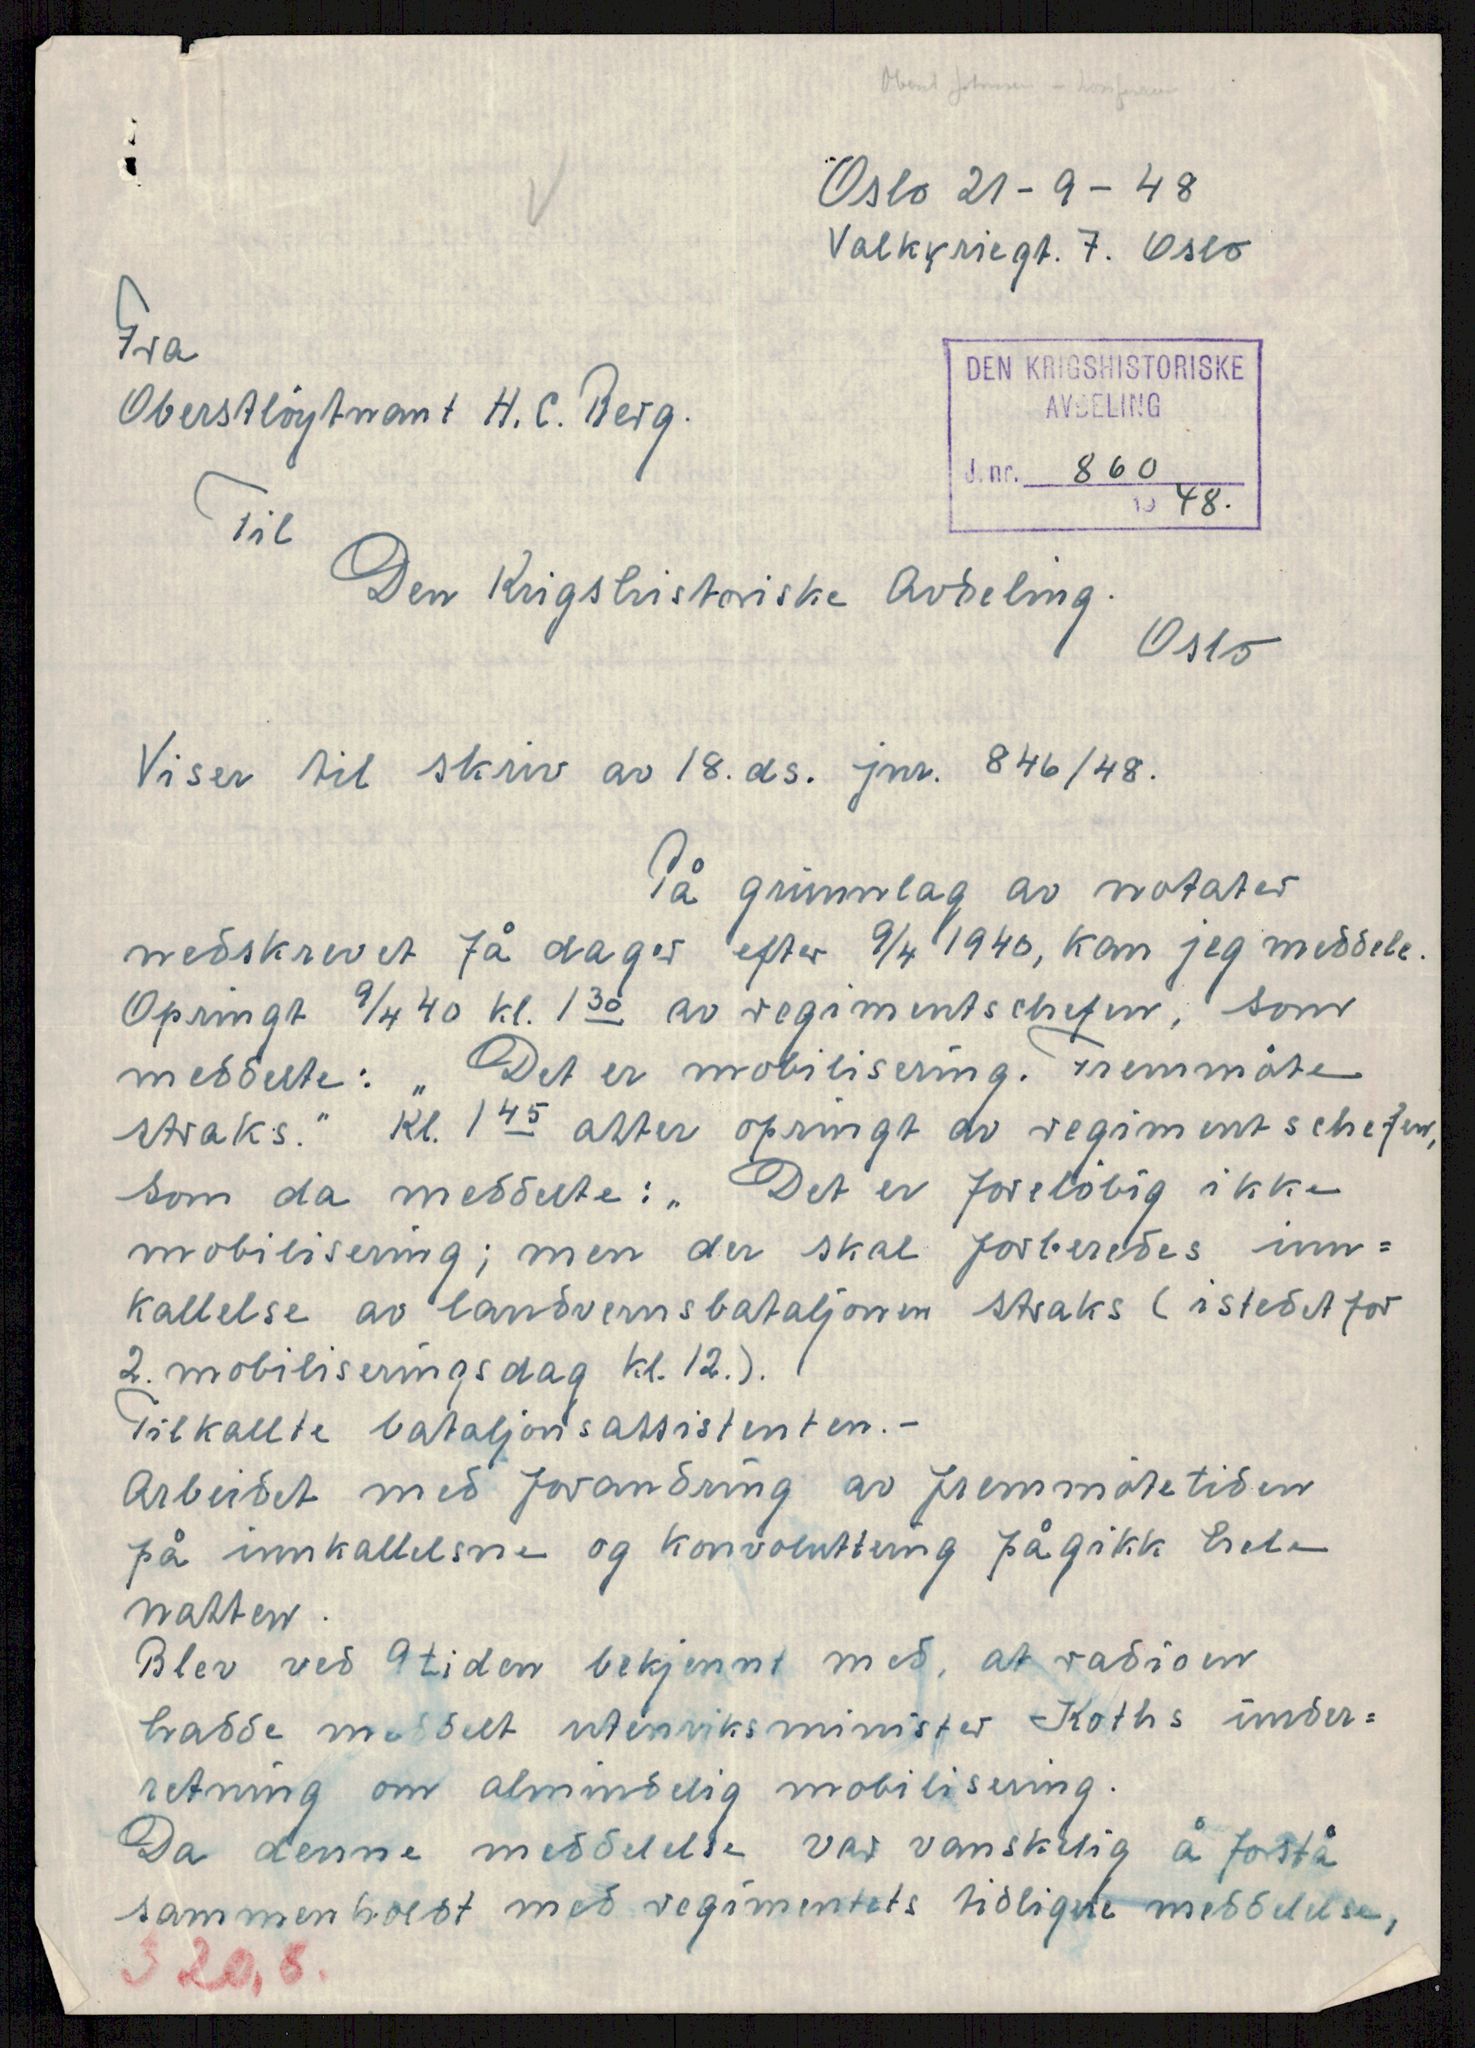 Oslo 21-9-48
Valkyriegt. 7. Oslo
Fra
Oberstløytnant H. C. Berg.
DEN KRIGSHISTORISKE
AVDELING
J.nr. 860
19 48.
Til
Den Krigshistoriske Avdeling.
Oslo
Viser til skriv av 18. ds. jnr. 846/48.
På grunnlag av notater
nedskrevet få dager efter 9/4 1940, kan jeg meddele.
Opringt 9/4 40 kl. 1 30 av regimentschefen, som
meddelte: „Det er mobilisering. Fremmøte
straks." Kl. 1 45 atter opringt av regimentschefen,
som da meddelte: „Det er foreløbig ikke
mobilisering; men der skal forberedes inn=
kallelse av landvernsbataljonen straks (istedetfor
2. mobiliseringsdag kl. 12.).
Tilkallte bataljonsassistenten.-
Arbeidet med forandring av fremmøtetiden
på innkallelsne og konvoluttering pågikk hele
natten.
Blev ved 9tiden bekjennt med, at radioen
hadde meddelt utenriksminister Koths under=
retning om almindelig mobilisering.
Da denne meddelelse var vanskelig å forstå
sammenholdt med regimentets tidligere meddelelse,
320,8.